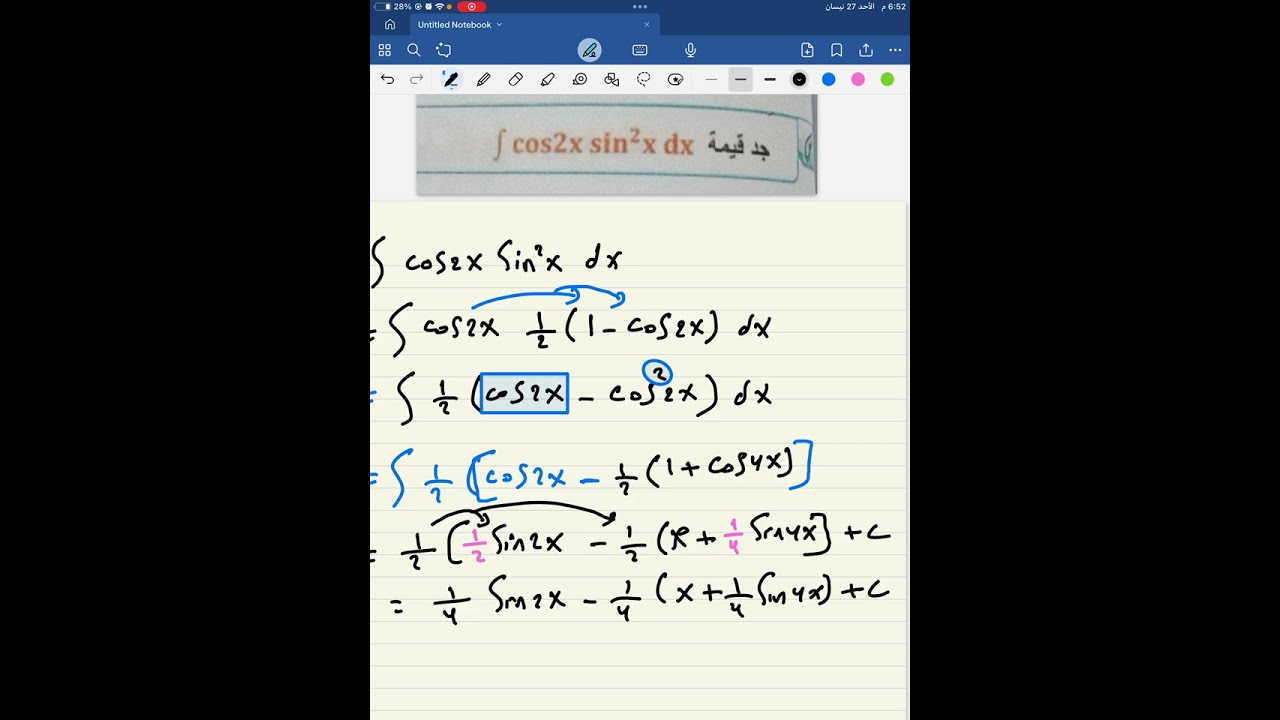 28%
6:52 م الأحد 27 نيسان
Untitled Notebook
جد قيمة ∫ cos2x sin²x dx
∫ cos2x sin²x dx
= ∫ cos2x 1/2 (1 - cos2x) dx
= ∫ 1/2 (cos2x - cos²2x) dx
= ∫ 1/2 [cos2x - 1/2 (1 + cos4x)]
= 1/2 [1/2 sin2x - 1/2 (x + 1/4 sin4x] + c
= 1/4 sin2x - 1/4 (x + 1/4 sin4x) + c